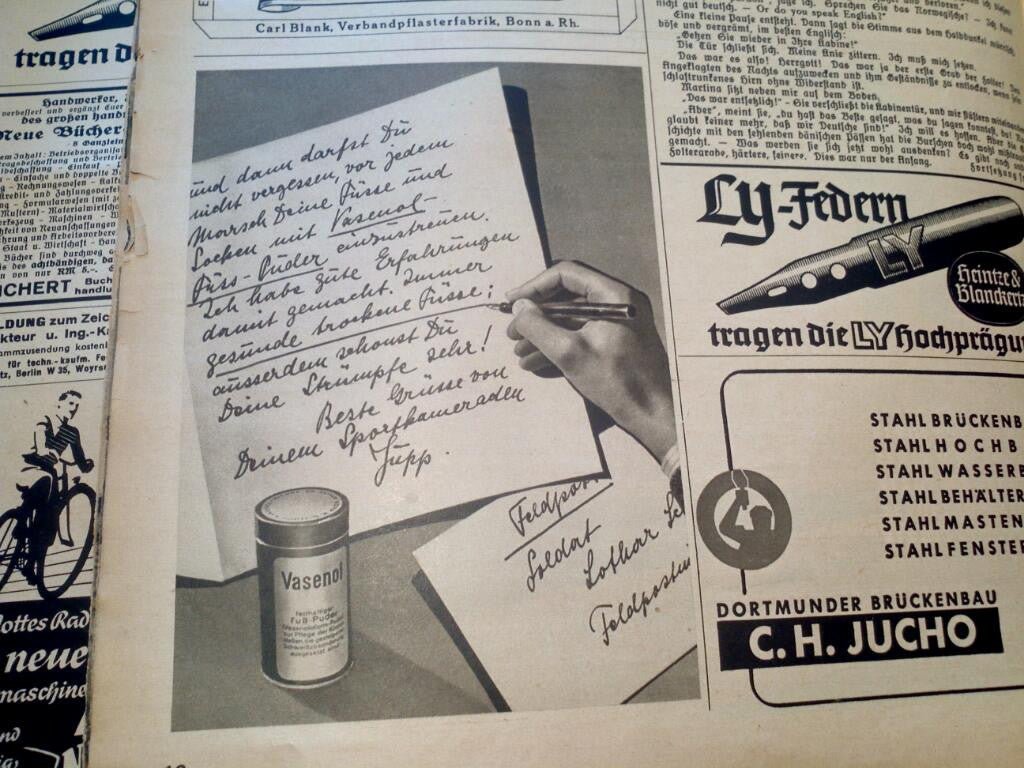 tragen di
Handwerker,
verbessert und ergänzt
des großen
Neue Bücher
8 Ganzlein
Inhalt: Betriebsorganis
RM 5.-
CHERT Buch
handlu
LDUNG zum Zeic
kteur u. Ing.-K
ammzusendung kostenl
für techn.-kaufm. Fe
tz, Berlin W 35, Woyrs
ottes Rad
neue
maschine
nd
Carl Blank, Verbandpflasterfabrik, Bonn a. Rh.
und dann darfst Du
nicht vergessen, vor jedem
Marsch Deine Füsse und
Socken mit Vasenol-
Füss-Püder einzustreuen.
Ich habe gute Erfahrungen
damit gemacht. Immer
gesunde trockene Füsse;
ausserdem schonst Du
Deine Strümpfe sehr!
Beste Grüsse von
Deinem Sportkameraden
Jupp.
Vasenol
Fuß-Puder
zur Pflege der
Feldpos
Soldat
Lothar Sch
Feldpostn
nicht gut deutsch. — Or do you speak English?"
Eine kleine Pause entsteht. Dann sagt die Stimme aus dem Halbdunkel
böse und vergrämt, im besten Englisch:
„Gehen Sie wieder in Ihre Kabine!"
Die Tür schließt sich. Meine Knie zittern. Ich muß mich setzen.
Das war es also! Herrgott! Das war ja der erste Grad der Folter! Den
Angeklagten des Nachts aufzuwecken und ihm Geständnisse zu entlocken, wenn sein
schlaftrunkenes Hirn ohne Widerstand ist.
Martina sitzt neben mir auf dem Boden.
„Das war entsetzlich!" — Sie verschließt die Kabinentür, und wir flüstern miteinander.
„Aber", meint sie, „du hast das Beste gesagt, was du sagen konntest, du!
glaubt keiner mehr, daß wir Deutsche sind!" Ich will es hoffen. Aber die
schichte mit den fehlenden dänischen Pässen hat die Burschen doch wohl
gemacht. — Was werden sie sich jetzt wohl ausdenken? Es gibt noch
Foltergrade, härtere, feinere. Dies war nur der Anfang.
Fortsetzung
LY-Federn
LY
Heintze &
Blanckertz
tragen die LY Hochprägu
STAHLBRÜCKENB
STAHLHOCHB
STAHLWASSERB
STAHLBEHÄLTER
STAHLMASTEN
STAHLFENSTER
DORTMUNDER BRÜCKENBAU
C. H. JUCHO